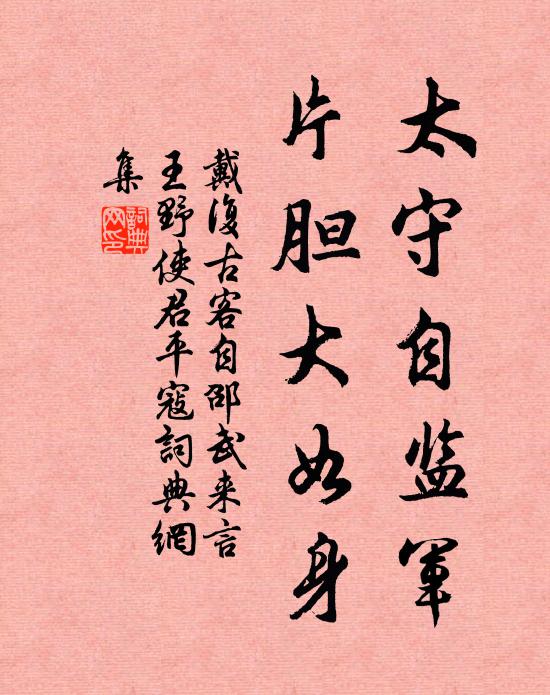 太守自监军
片胆大如身
戴復古客自邵武来言
王野使君平寇詞典網
集
詞典網印